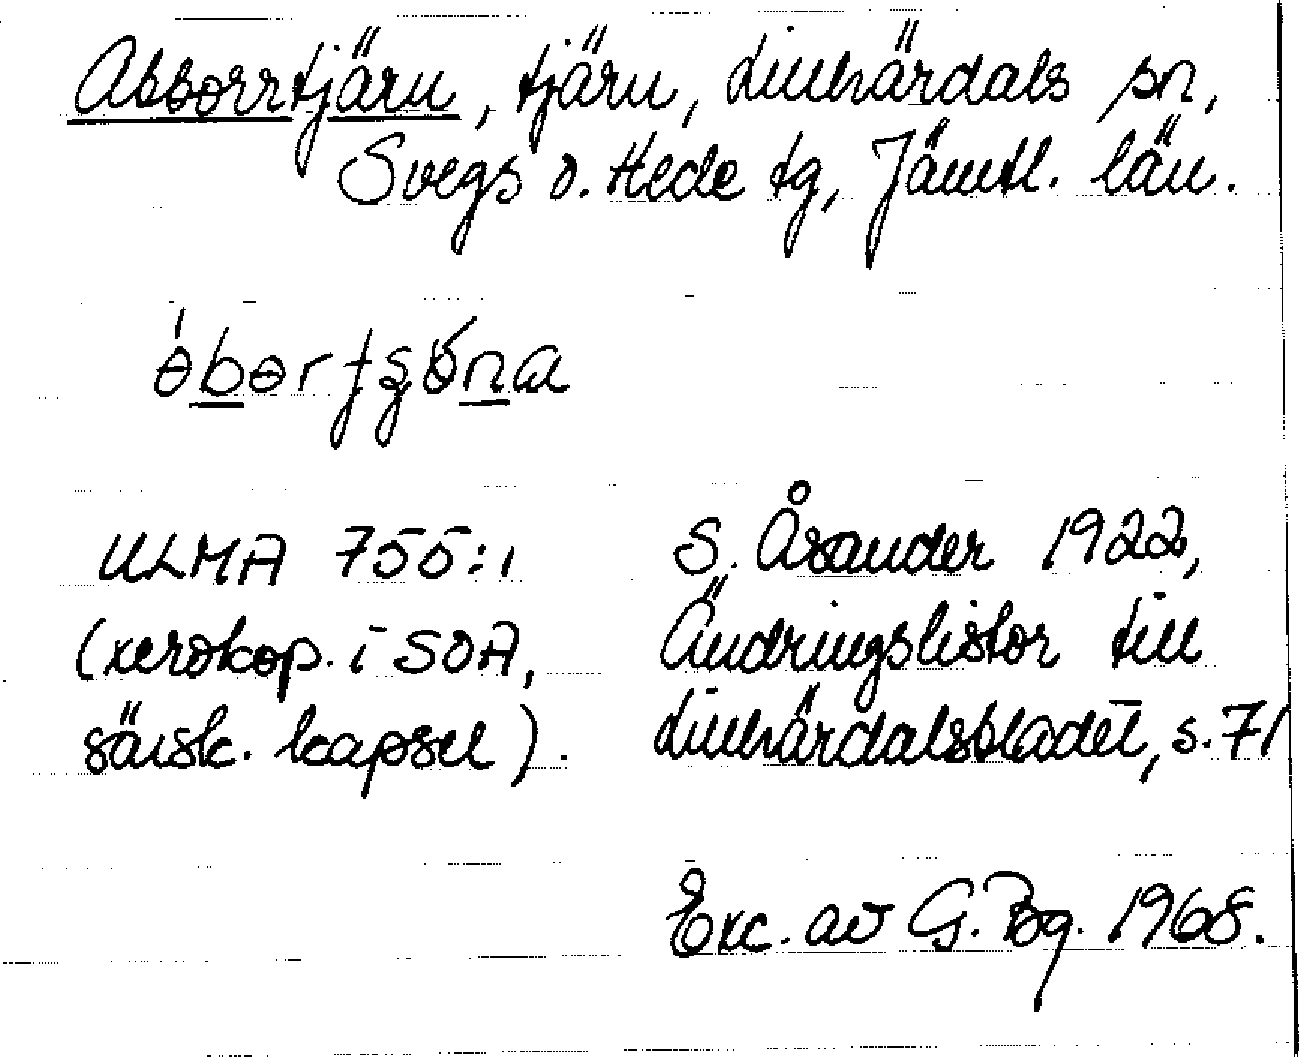 Abborrtjärn, tjärn, Lillhärdals sn,
Svegs o. Hede tg, Jämtl. län.
ULMA 755:1 S. Åsander 1922,
(xerokop. i SOA, Ändringslistor till
särsk. kapsel). Lillhärdalsbladet, s. 71
Exc. av G. Bg. 1968.